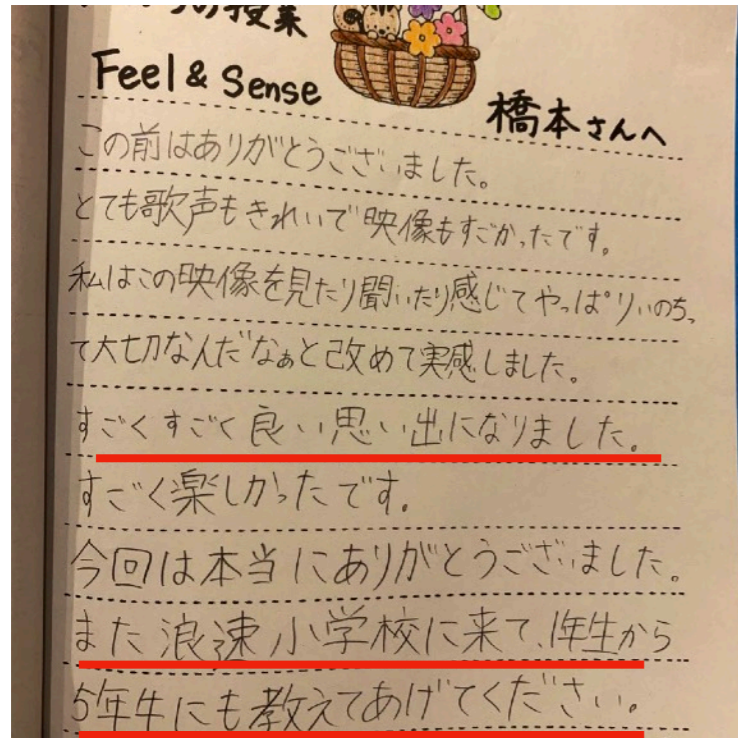 の授業
Feel & Sense
橋本さんへ
この前はありがとうございました。
とても歌声もきれいで映像もすごかったです。
私はこの映像を見たり聞いたり感じてやっぱりいのちっ
て大切なんだなぁと改めて実感しました。
すごくすごく良い思い出になりました。
すごく楽しかったです。
今回は本当にありがとうございました。
また浪速小学校に来て、1年生から
5年生にも教えてあげてください。